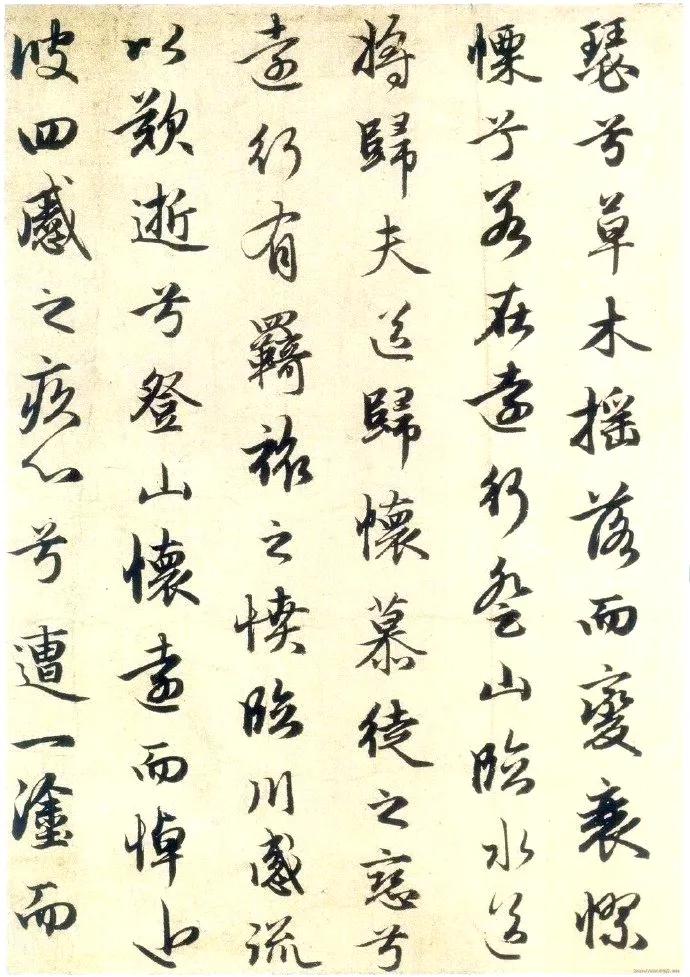 瑟兮草木搖落而變衰憭
慄兮若在遠行登山臨水送
將歸夫送歸懷慕徒之戀兮
遠行有羇旅之憤臨川感流
以歎逝兮登山懷遠而悼近
彼四慼之疚心兮遭一塗而